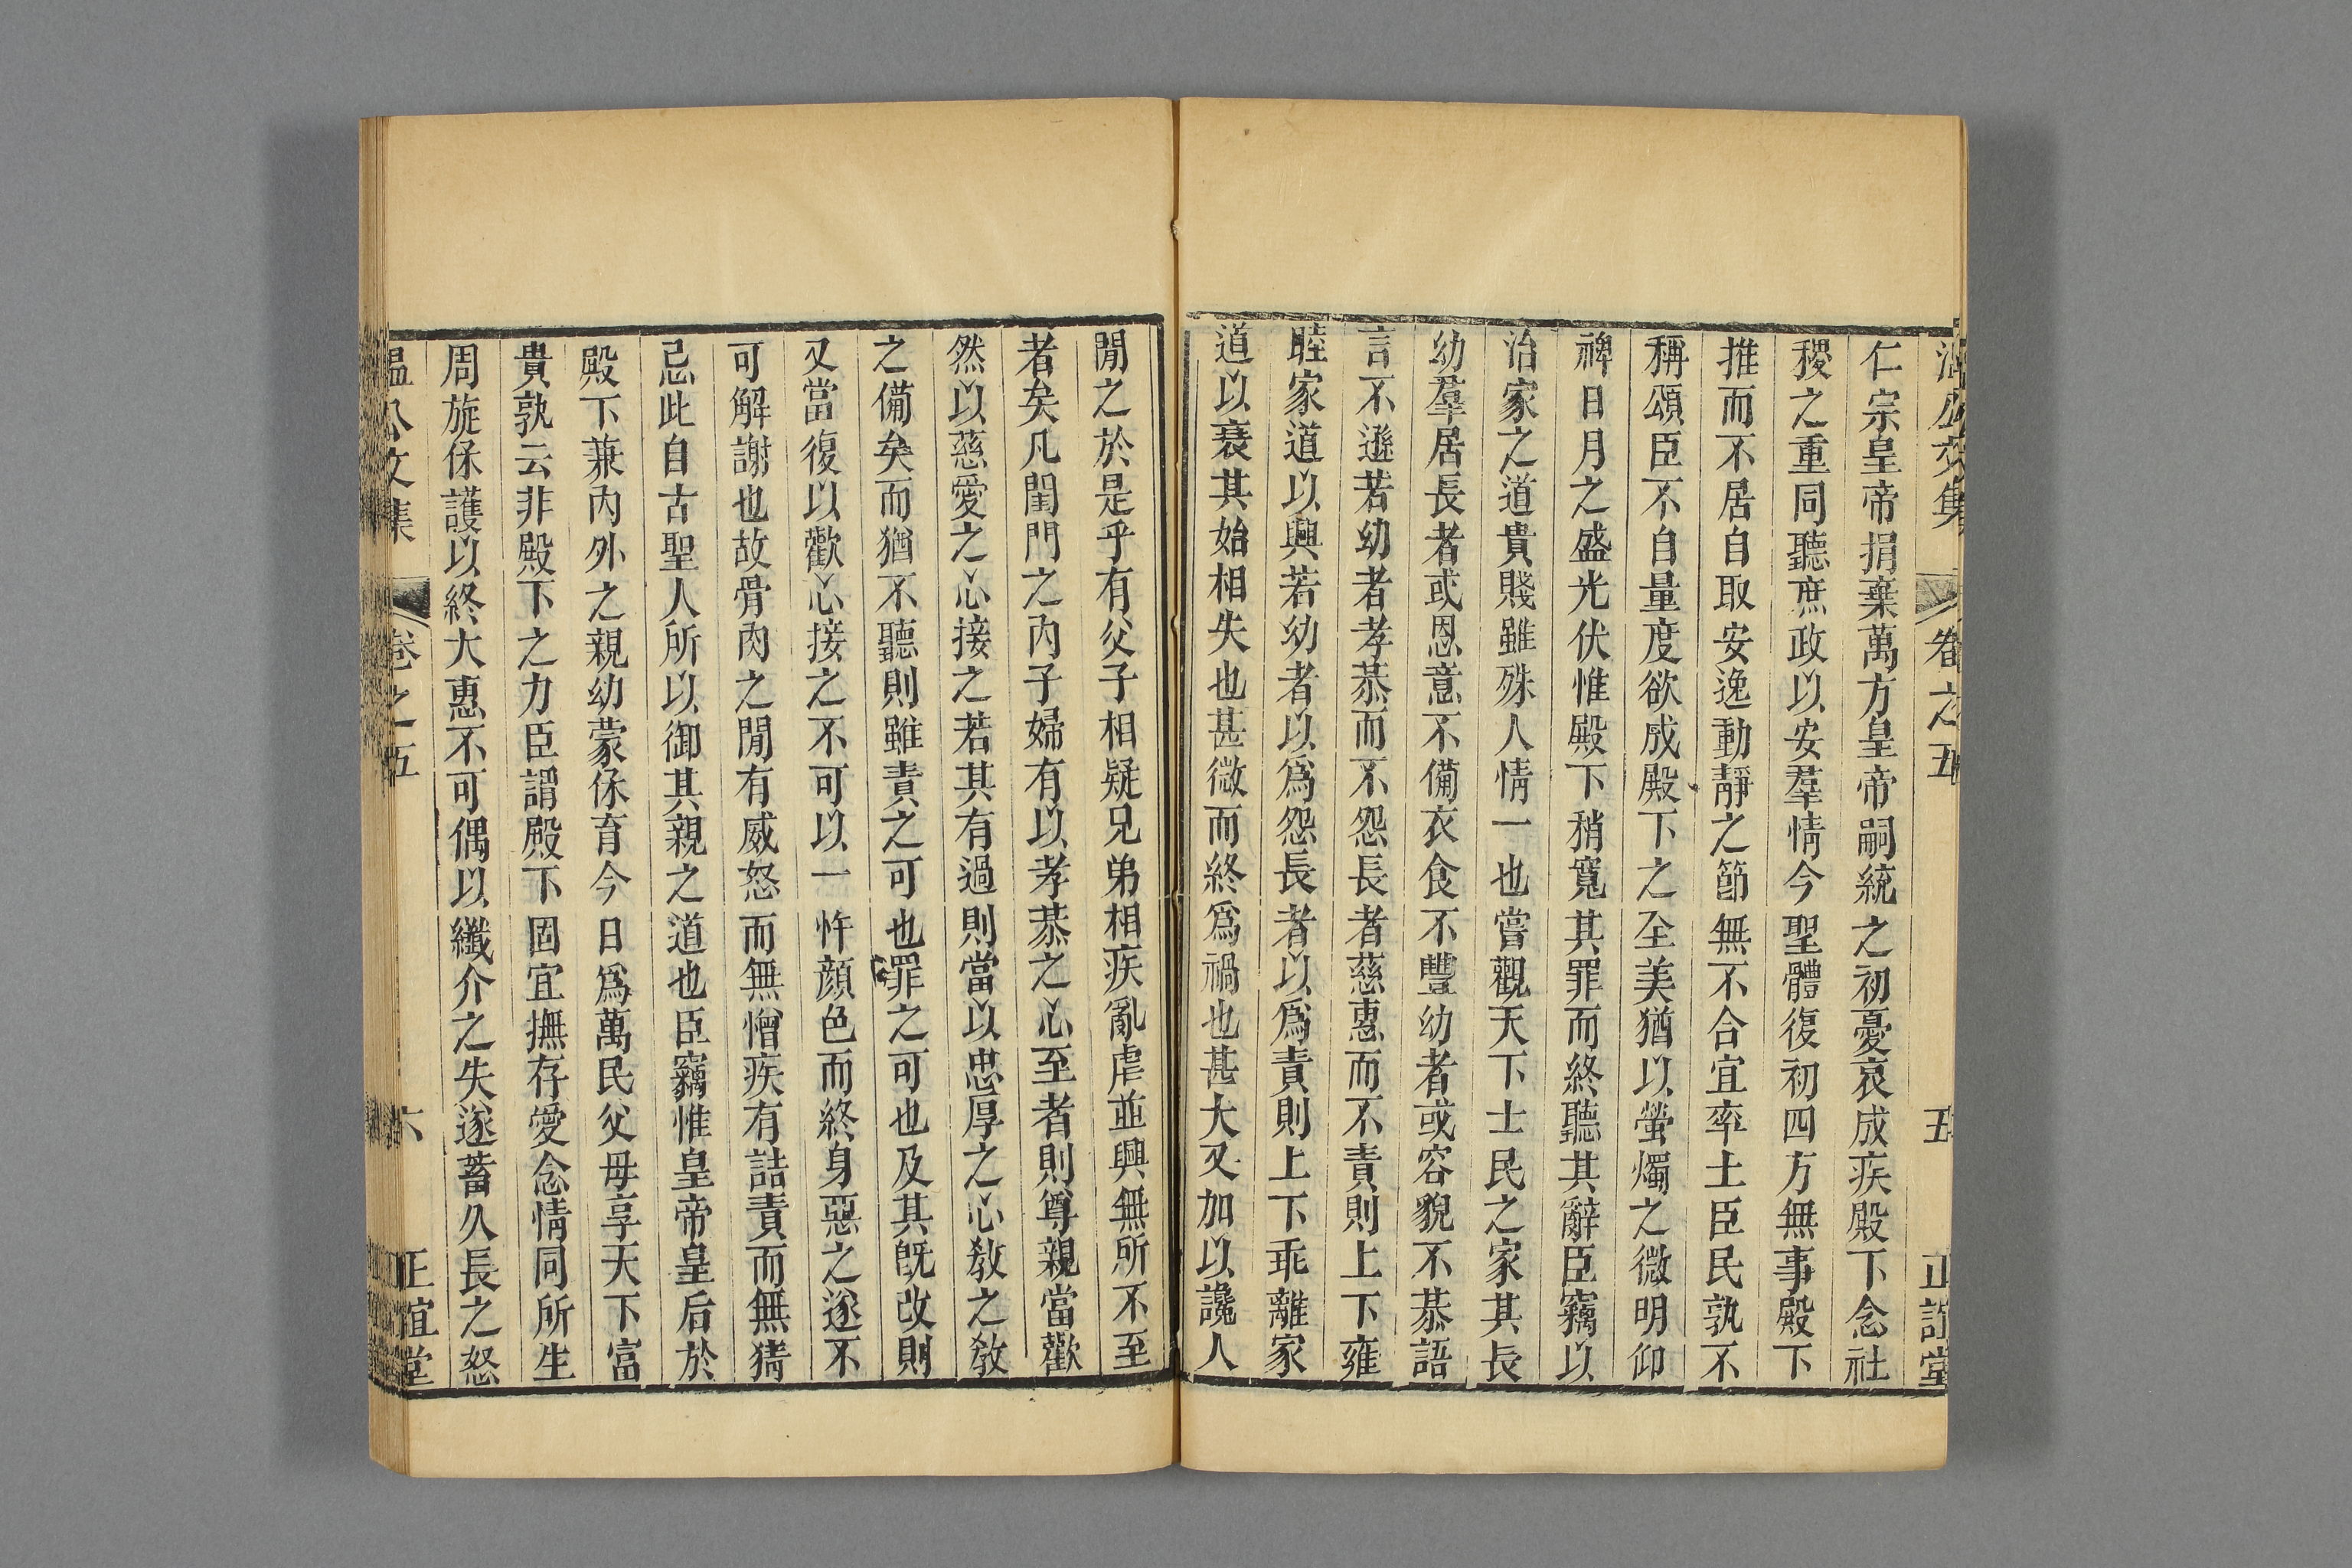 溫公文集 卷之五 五 正誼堂
仁宗皇帝捐棄萬方皇帝嗣統之初憂哀成疾殿下念社
稷之重同聽庶政以安羣情今聖體復初四方無事殿下
推而不居自取安逸動靜之節無不合宜率土臣民孰不
稱頌臣不自量度欲成殿下之至美猶以螢燭之微明仰
裨日月之盛光伏惟殿下稍寬其罪而終聽其辭臣竊以
治家之道貴賤雖殊人情一也嘗觀天下士民之家其長
幼羣居長者或恩意不備衣食不豐幼者或容貌不恭語
言不遜若幼者孝恭而不怨長者慈惠而不責則上下雍
睦家道以興若幼者以爲怨長者以爲責則上下乖離家
道以衰其始相失也甚微而終爲禍也甚大又加以讒人
閒之於是乎有父子相疑兄弟相疾亂虐並興無所不至
者矣凡閨門之內子婦有以孝恭之心至者則尊親當歡
然以慈愛之心接之若其有過則當以忠厚之心敎之敎
之備矣而猶不聽則雖責之可也罪之可也及其旣改則
又當復以歡心接之不可以一忤顏色而終身惡之遂不
可解謝也故骨肉之閒有威怒而無憎疾有詰責而無猜
忌此自古聖人所以御其親之道也臣竊惟皇帝皇后於
殿下兼內外之親幼蒙保育今日爲萬民父母享天下富
貴孰云非殿下之力臣謂殿下固宜撫存愛念情同所生
周旋保護以終大惠不可偶以纖介之失遂蓄久長之怒
溫公文集 卷之五 六 正誼堂